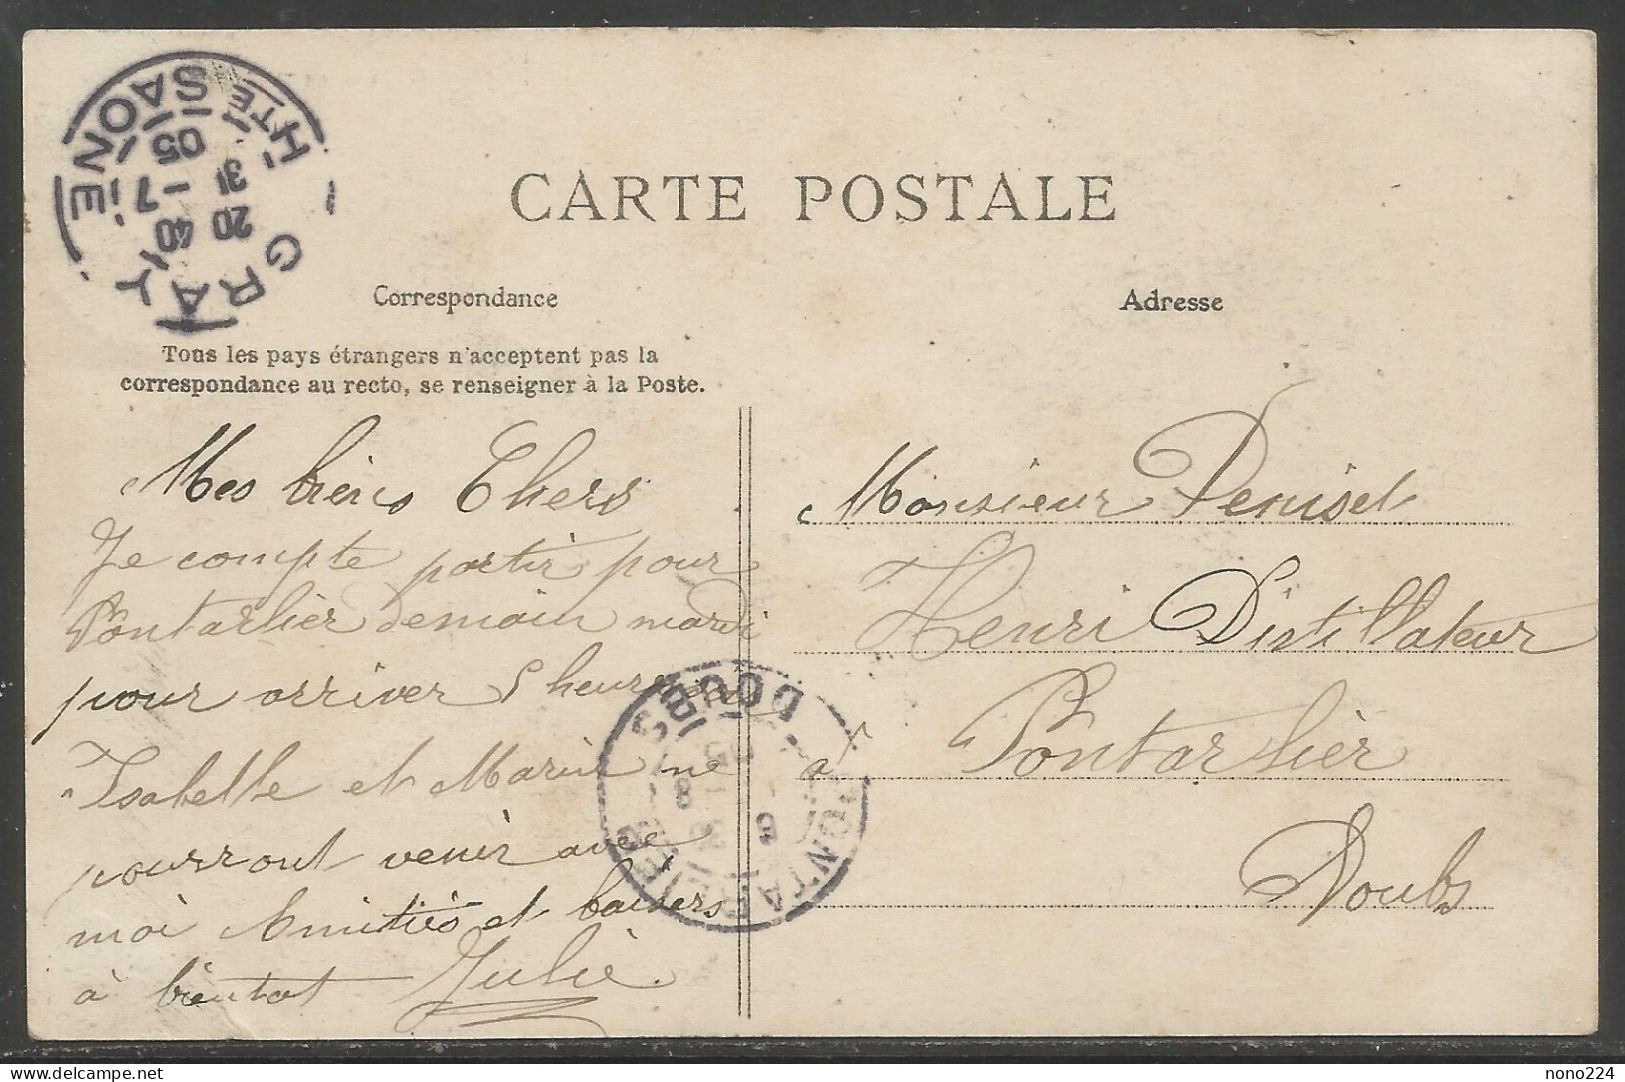 GRAY
HTE SAONE
20 40
31 - 7
05
CARTE POSTALE
Correspondance
Tous les pays étrangers n'acceptent pas la
correspondance au recto, se renseigner à la Poste.
Mes biens Chers
Je compte partir pour
Pontarlier demain mardi
pour arriver 5 heures
Isabelle et Marie ne
pourront venir avec
moi Amitiés et baisers
à bientot Julie.
Adresse
Monsieur Deniset
Henri Distillateur
à Pontarlier
Doubs
PONTARLIER
DOUBS
nono224